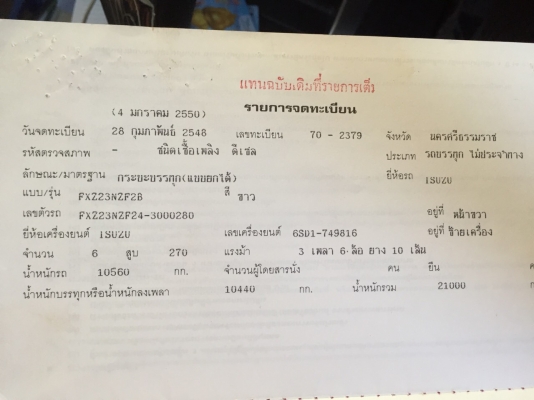 แทนฉบับเดิมที่รายการเต็ม
(4 มกราคม 2550) รายการจดทะเบียน
วันจดทะเบียน 28 กุมภาพันธ์ 2548 เลขทะเบียน 70 - 2379 จังหวัด นครศรีธรรมราช
รหัสตรวจสภาพ - ชนิดเชื้อเพลิง ดีเซล ประเภท รถบรรทุก ไม่ประจำทาง
ลักษณะ/มาตรฐาน กระบะบรรทุก(แบบยกได้) ยี่ห้อรถ ISUZU
แบบ/รุ่น FXZ23NZF2B สี ขาว
เลขตัวรถ FXZ23NZF24-3000280 อยู่ที่ หน้าขวา
ยี่ห้อเครื่องยนต์ ISUZU เลขเครื่องยนต์ 6SD1-749816 อยู่ที่ ซ้ายเครื่อง
จำนวน 6 สูบ 270 แรงม้า 3 เพลา 6 ล้อ ยาง 10 เส้น
น้ำหนักรถ 10560 กก. จำนวนผู้โดยสารนั่ง คน ยืน
น้ำหนักบรรทุกหรือน้ำหนักลงเพลา 10440 กก. น้ำหนักรวม 21000